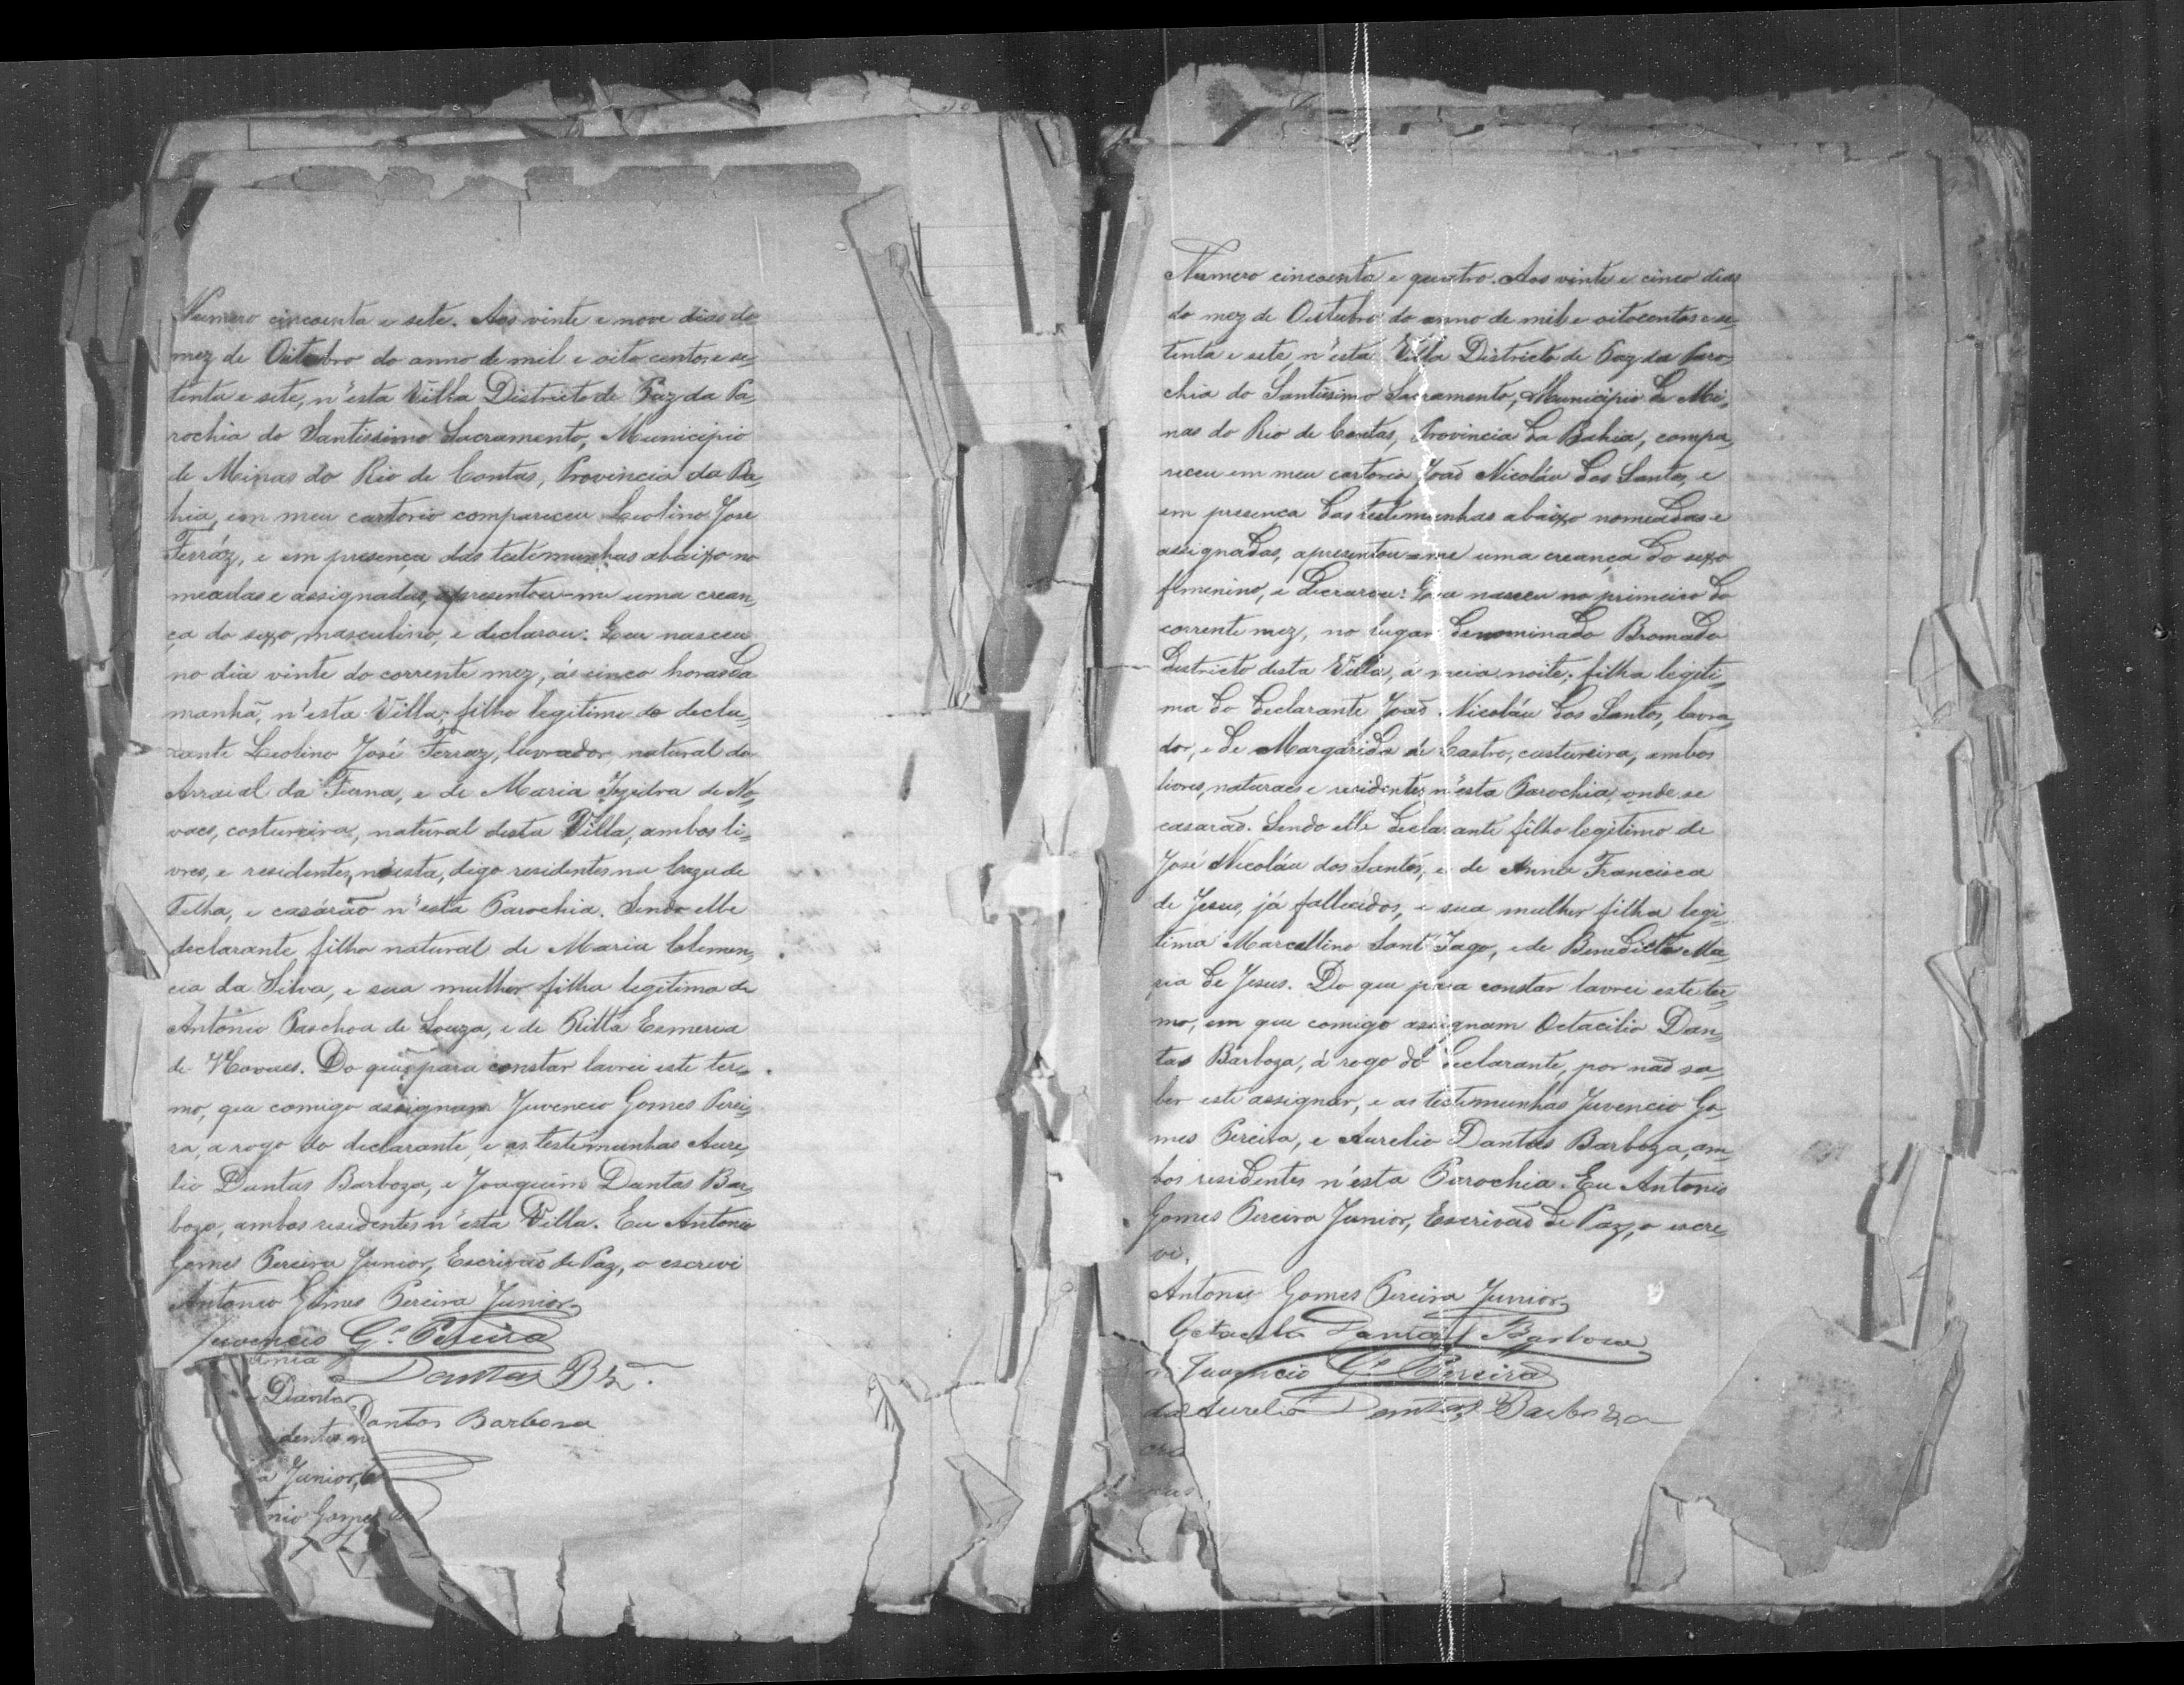 Numero cincoenta e sete. Aos vinte e nove dias do
mez de Outubro do anno de mil e oito centos e se-
tenta e sete, n'esta Villa Districto de Paz da Pa-
rochia do Santissimo Sacramento, Municipio
de Minas do Rio de Contas, Provincia da Ba-
hia, em meu cartorio compareceu Leolino José
Ferráz, e em presença das testemunhas abaixo no
meadas e assignadas, apresentou-me uma crean-
ça do sexo masculino, e declarou: Que nasceu
no dia vinte do corrente mez, ás cinco horas da
manhã, n'esta Villa; filho legitimo do decla-
rante Leolino José Ferraz, lavrador, natural do
Arraial da Furna, e de Maria Izidra de No-
vaes, costureira, natural desta Villa, ambos li-
vres, e residentes, n'esta, digo residentes na Caza de
Telha, e casárão n'esta Parochia. Sendo elle
declarante filho natural de Maria Clemen-
cia da Silva, e sua mulher filha legitima de
Antonio Paschoa de Souza, e de Ritta Esmeria
de Novaes. Do que para constar lavrei este ter-
mo, que comigo assignam Juvencio Gomes Perei-
ra, a rogo do declarante, e as testemunhas Aure-
lio Dantas Barboza, e Joaquim Dantas Bar-
boza, ambos residentes n'esta Villa. Eu Antonio
Gomes Pereira Junior, Escrivaõ de Paz, o escrevi
Antonio Gomes Pereira Junior
Juvencio G.s Pereira
Dantas Bz.
Danta
Dantas Barbosa
identes n
a Junior, E
nio Gomes
Numero cincoenta e quatro. Aos vinte e cinco dias
do mez de Outubro do anno de mil e oitocentos e se-
tenta e sete, n'esta Villa Districto de Paz da Paro-
chia do Santissimo Sacramento, Municipio de Mi-
nas do Rio de Contas, Provincia da Bahia, compa-
receu em meu cartorio Joaõ Nicoláu dos Santos, e
em presença das testemunhas abaixo nomeadas e
assignadas, apresentou-me uma creança do sexo
femenino, e decrarou: Que nasceu no primeiro do
corrente mez, no lugar denominado Bromado
Districto desta Villa, á meia noite; filha legiti-
ma do declarante Joaõ Nicoláu dos Santos, lavra-
dor, e de Margarida de Castro, custureira, ambos
livres, naturaes e residentes n'esta Parochia, onde se
casaraõ. Sendo elle declarante filho legitimo de
José Nicoláu dos Santos, e de Anna Francisca
de Jesus, já fallecidos, e sua mulher filha legi-
tima Marcellino Sant'Iago, e de Benedicta Ma-
ria de Jesus. Do que para constar lavrei este ter-
mo, em que comigo assignam Octacilio Dan-
tas Barboza, á rogo do declarante, por naõ sa-
ber este assignar, e as testemunhas Juvencio Go-
mes Pereira, e Aurelio Dantas Barboza, am-
bos residentes n'esta Parochia. Eu Antonio
Gomes Pereira Junior, Escrivaõ de Paz, o escre-
vi.
Antonio Gomes Pereira Junior
Octacilio Dantas Barboza
Juvencio G.s Pereira
Aurelio Dantas Barboza